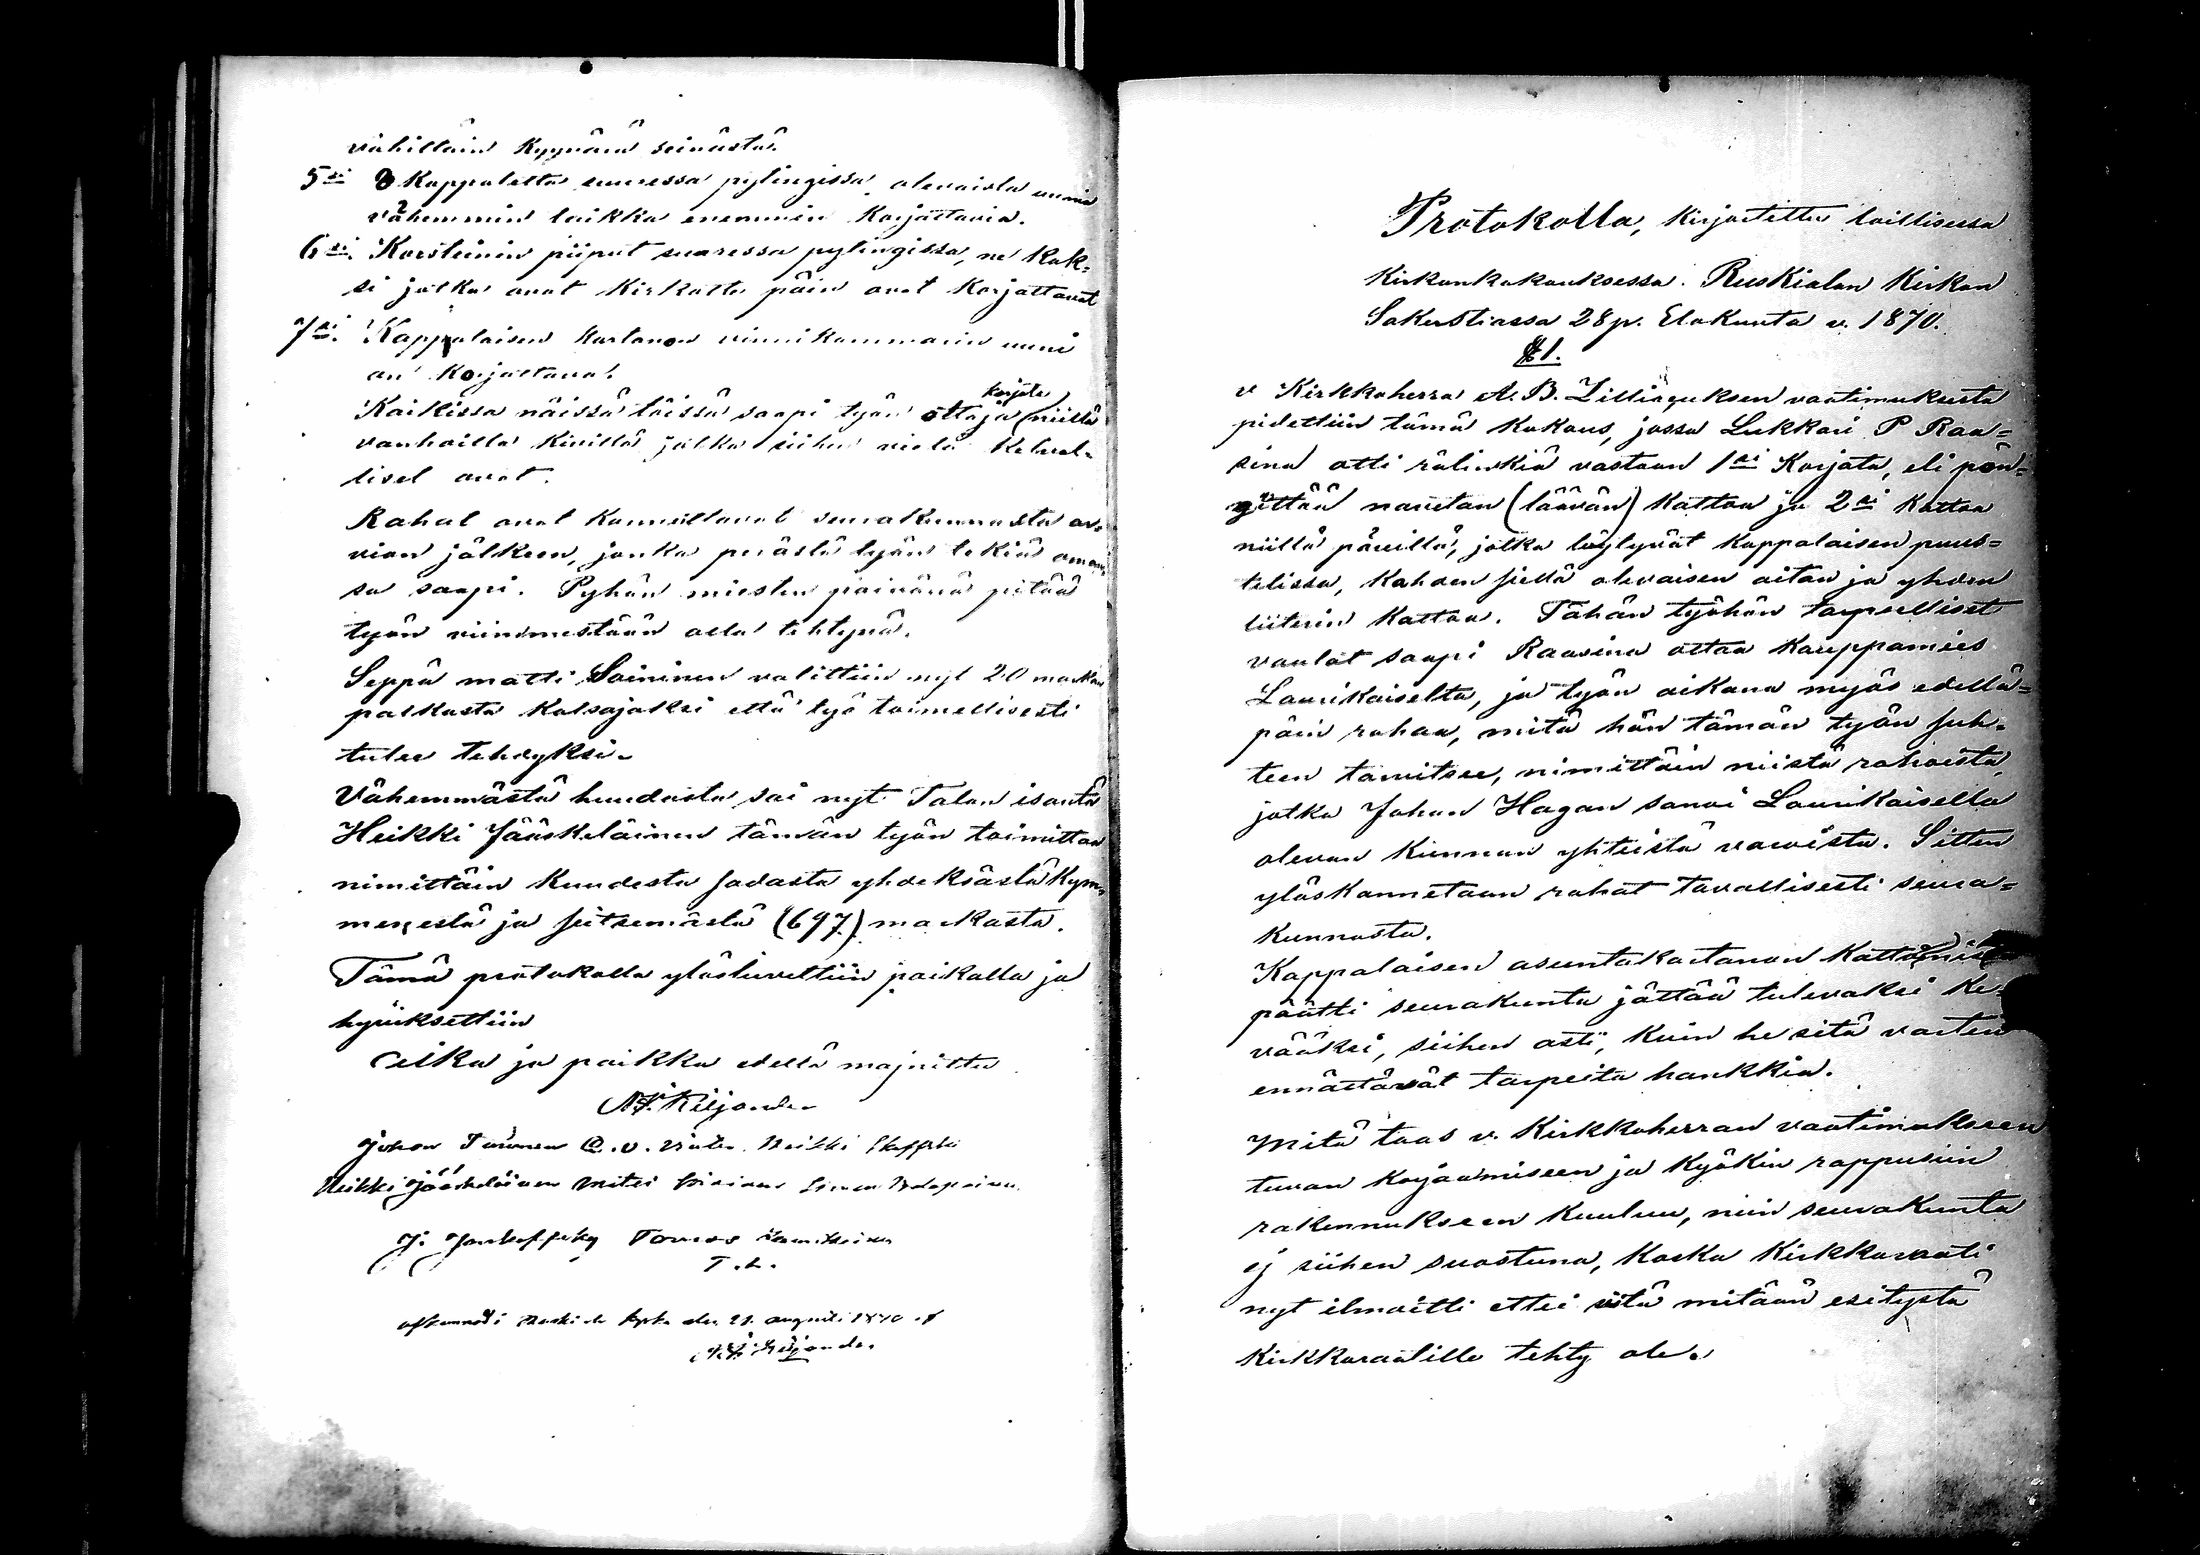 vähittäin Kyynärä seinästä.
5si 8 Kappaletta suuressa pytingissä olevaista uunia
vähemmin taikka enemmin Korjattavia.
6si Korsteinin piiput suuressa pytingissä, ne kak=
si jotka ovat Kirkolle päin ovat Korjattavat
7si. Kappalaisen Kartanon vinnikammarin uuni
on Korjattava.
Kaikissa näissä töissä saapi työn ottaja korjata (niillä
vanhoilla Kivillä jotka siihen vielä Kelwol-
liset ovat.
Rahat ovat Kannettavat seurakunnasta ar-
vion jälkeen, jonka perästä työn tekiä oman
sa saapi. Pyhän miesten päivänä pitää
työn viimmestään olla tehtynä.
Seppä Matti Soininen valittiin nyt 20 markan
palkasta Katsojaksi että työ toimellisesti
tulee tehdyksi.
Vähemmästä huudosta sai nyt Talon isäntä
Heikki Jääskeläinen tämän työn toimittaa
nimittäin Kuudesta sadasta yhdeksästäkym-
menestä ja seitsemästä (697) markasta.
Tämä protokolla ylösluvettiin paikalla ja
hyväksettiin
Aika ja paikka edellä mainittu
Kiljander
Johan
Heikki
Heikki Jääskeläinen
Tomas
T. L.
den 21 augusti 1870 af
Kiljander
Protokolla, Kirjoitettu laillisessa
Kirkonkokouksessa Ruskialan Kirkon
Sakerstiassa 28 p. Elokuuta v. 1870.
§ 1.
v Kirkkoherra A. B. Zilliaquksen vaatimuksesta
pidettiin tämä Kokous, jossa Lukkari P Raa=
sina otti rälinkiä vastaan 1si Korjata, eli pön=
gittää navetan (läävän) Katton ja 2si Kattaa
niillä päreillä, jotka löytyvät Kappalaisen puus=
telissa, Kahden siellä olevaisen aitan ja yhden
liiterin Katton. Tähän työhön tarpeelliset
vaulat saapi Raasina ottaa Kauppamies
Laurikaiselta, ja työn aikana myös edellä=
päin rahaa, mitä hän tämän työn suh-
teen tarvitsee, nimittäin niistä rahoista,
jotka Johan Hagan sanoi Laurikaisella
olevan Kunnan yhteistä varoista. Sitten
ylöskannetaan rahat tavallisesti seura=
Kunnasta.
Kappalaisen asuntokartanon Kattamisen
päätti seurakunta jättää tulevaksi Ke-
vääksi, siihen asti, Kuin he sitä varten
ennättävät tarpeita hankkia.
Mitä taas v. Kirkkoherran vaatimukseen
tuvan Korjaamiseen ja Kyökin rappusiin
rakennukseen Kuuluu, niin seurakunta
ej siihen suostuna, Koska Kirkkoraati
nyt ilmoitti ettei siitä mitään esitystä
Kirkkoraatille tehty ole.